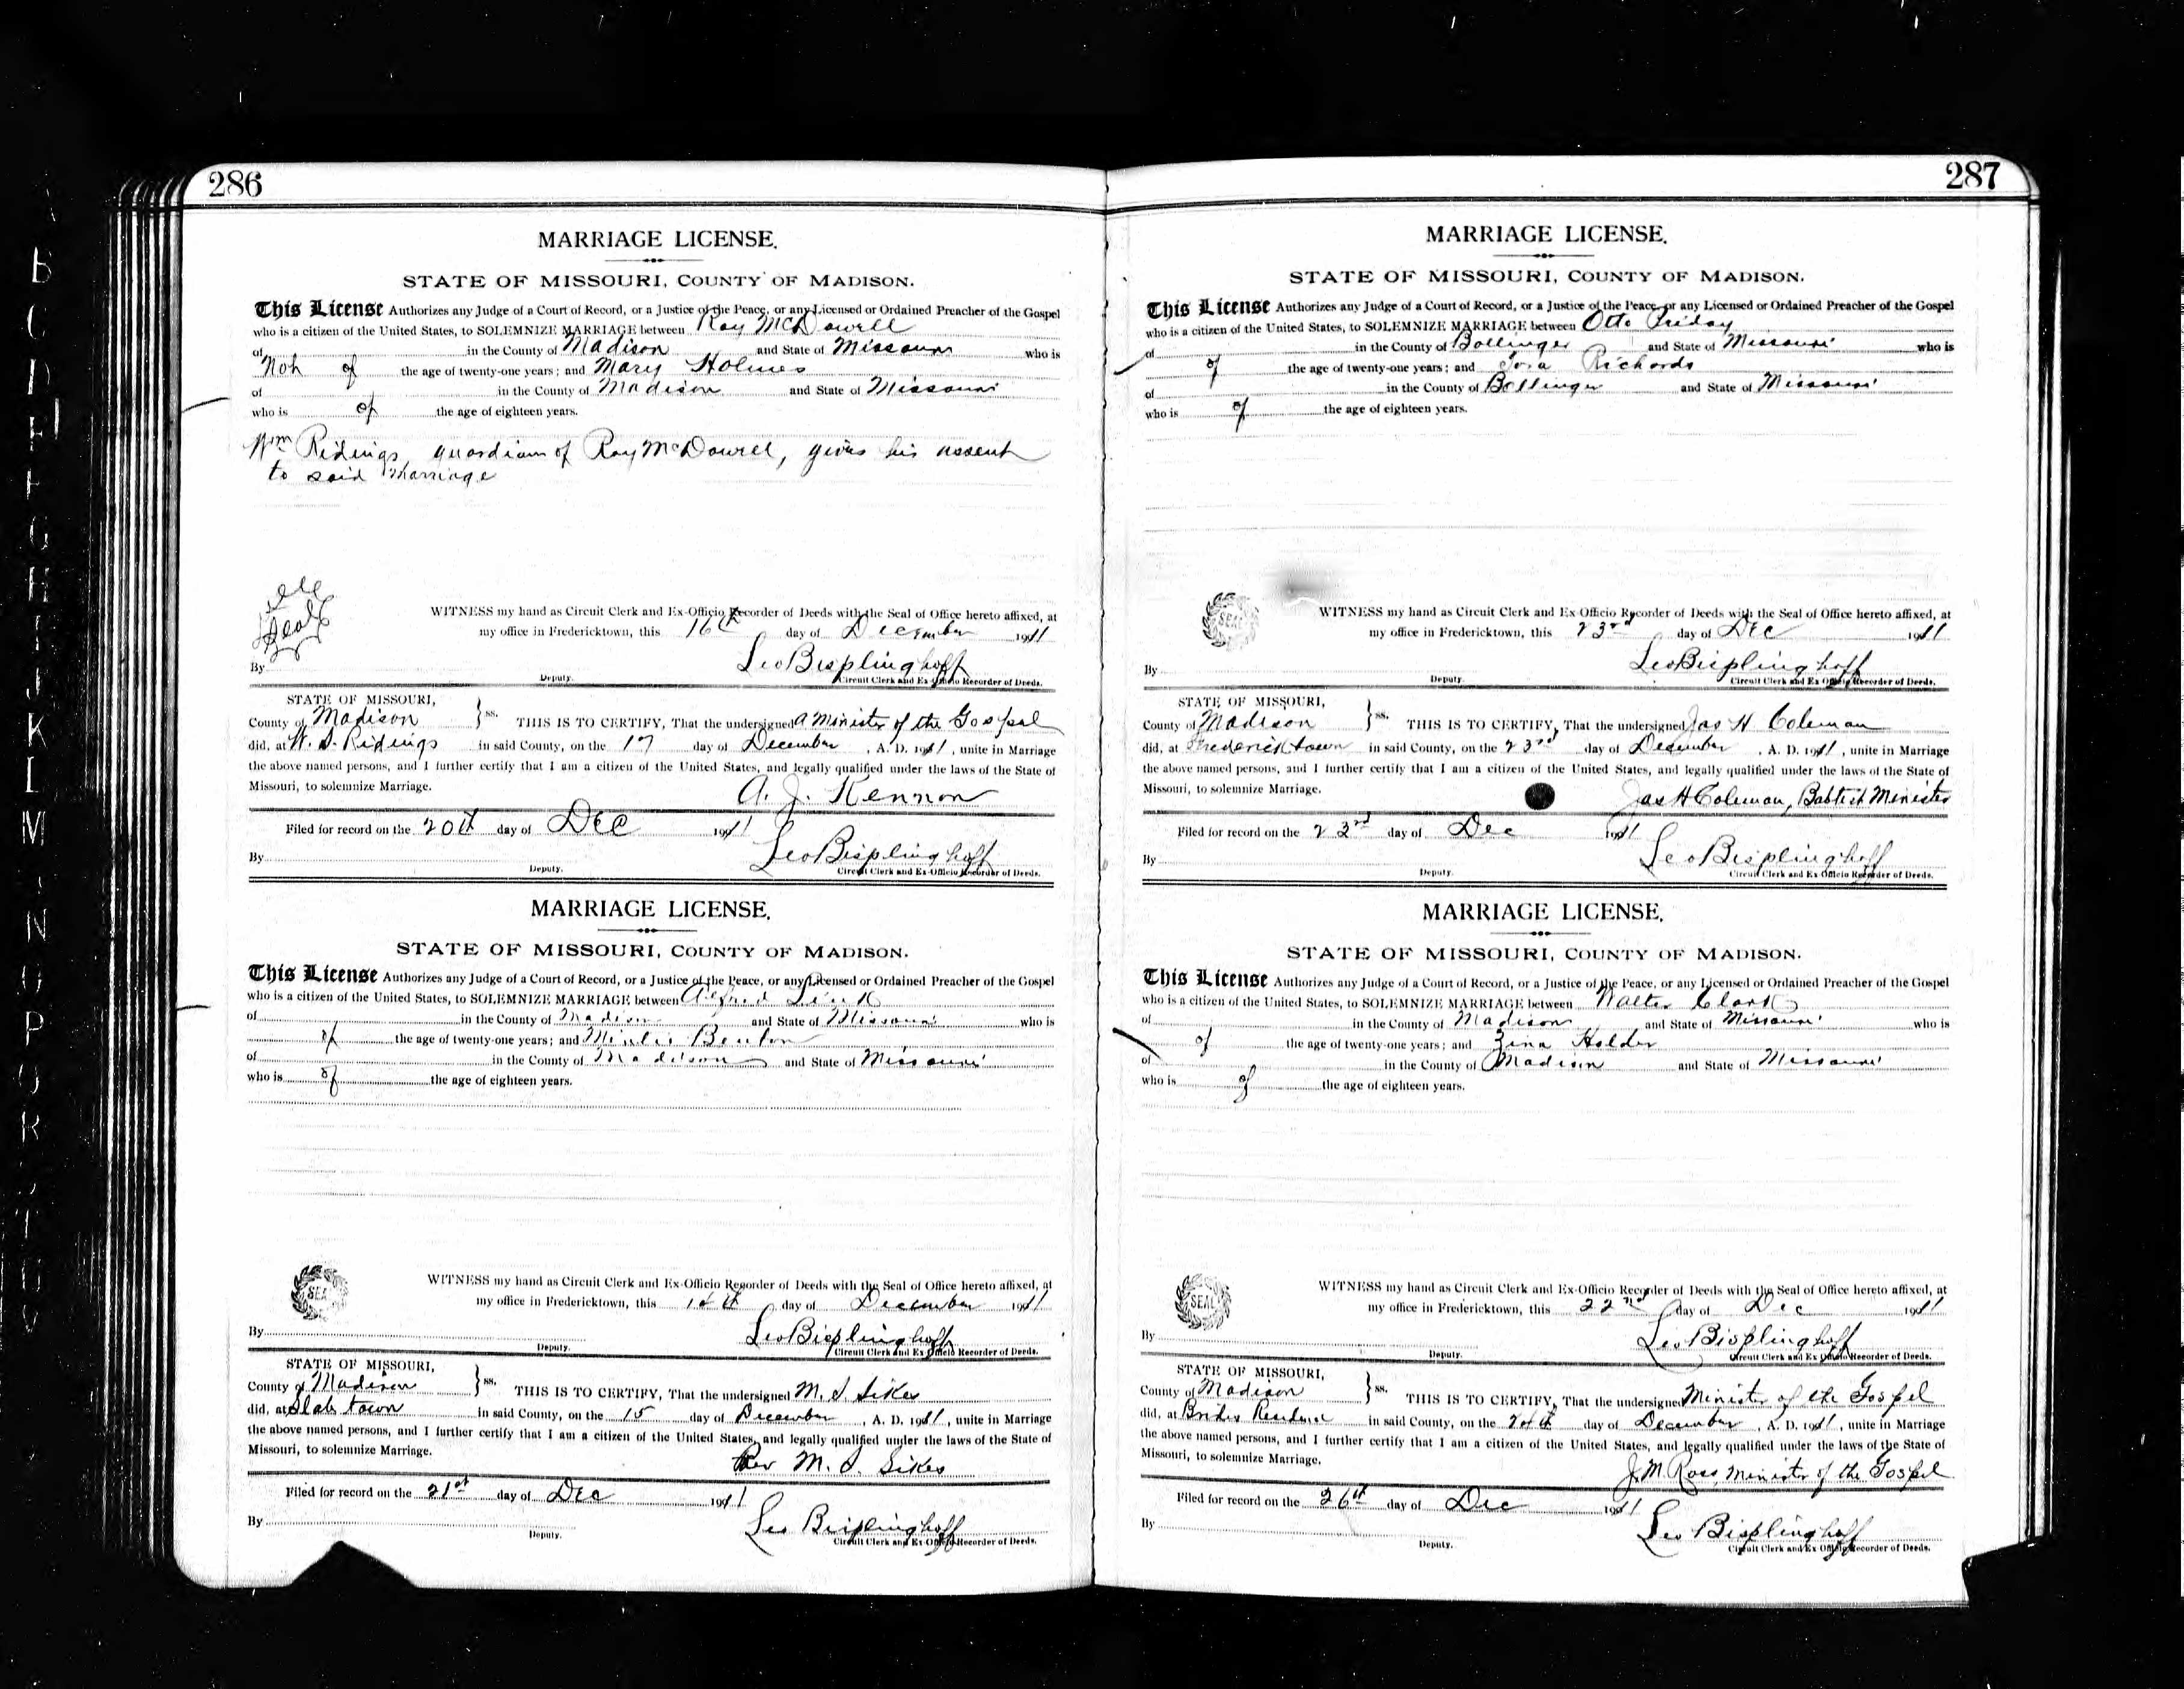 286
MARRIAGE LICENSE.
STATE OF MISSOURI, COUNTY OF MADISON.
This License Authorizes any Judge of a Court of Record, or a Justice of the Peace, or any Licensed or Ordained Preacher of the Gospel
who is a citizen of the United States, to SOLEMNIZE MARRIAGE between Roy McDowell
of in the County of Madison and State of Missouri who is
Not of the age of twenty-one years; and Mary Holmes
of in the County of Madison and State of Missouri
who is of the age of eighteen years.
Wm Ridings, guardian of Roy McDowell, gives his assent
to said Marriage
Seal
WITNESS my hand as Circuit Clerk and Ex-Officio Recorder of Deeds with the Seal of Office hereto affixed, at
my office in Fredericktown, this 16th day of December 1911
By Leo Bisplinghoff
Deputy. Circuit Clerk and Ex-Officio Recorder of Deeds.
STATE OF MISSOURI,
County of Madison } ss. THIS IS TO CERTIFY, That the undersigned A Minister of the Gospel
did, at W. S. Ridings in said County, on the 17 day of December, A. D. 1911, unite in Marriage
the above named persons, and I further certify that I am a citizen of the United States, and legally qualified under the laws of the State of
Missouri, to solemnize Marriage. A. J. Kennon
Filed for record on the 20th day of Dec 1911
By Leo Bisplinghoff
Deputy. Circuit Clerk and Ex-Officio Recorder of Deeds.
MARRIAGE LICENSE.
STATE OF MISSOURI, COUNTY OF MADISON.
This License Authorizes any Judge of a Court of Record, or a Justice of the Peace, or any Licensed or Ordained Preacher of the Gospel
who is a citizen of the United States, to SOLEMNIZE MARRIAGE between Alfred Sink
of in the County of Madison and State of Missouri who is
of the age of twenty-one years; and Benton
of in the County of Madison and State of Missouri
who is of the age of eighteen years.
SEAL
WITNESS my hand as Circuit Clerk and Ex-Officio Recorder of Deeds with the Seal of Office hereto affixed, at
my office in Fredericktown, this day of December 1911
By Leo Bisplinghoff
Deputy. Circuit Clerk and Ex-Officio Recorder of Deeds.
STATE OF MISSOURI,
County of Madison } ss. THIS IS TO CERTIFY, That the undersigned M. S. Sikes
did, at Slabtown in said County, on the 15 day of December, A. D. 1911, unite in Marriage
the above named persons, and I further certify that I am a citizen of the United States, and legally qualified under the laws of the State of
Missouri, to solemnize Marriage. Rev M. S. Sikes
Filed for record on the 21st day of Dec 1911
By Leo Bisplinghoff
Deputy. Circuit Clerk and Ex-Officio Recorder of Deeds.
287
MARRIAGE LICENSE.
STATE OF MISSOURI, COUNTY OF MADISON.
This License Authorizes any Judge of a Court of Record, or a Justice of the Peace, or any Licensed or Ordained Preacher of the Gospel
who is a citizen of the United States, to SOLEMNIZE MARRIAGE between Otto Friday
of in the County of Bollinger and State of Missouri who is
of the age of twenty-one years; and Richards
of in the County of Bollinger and State of Missouri
who is of the age of eighteen years.
SEAL
WITNESS my hand as Circuit Clerk and Ex-Officio Recorder of Deeds with the Seal of Office hereto affixed, at
my office in Fredericktown, this 23rd day of Dec 1911
By Leo Bisplinghoff
Deputy. Circuit Clerk and Ex-Officio Recorder of Deeds.
STATE OF MISSOURI,
County of Madison } ss. THIS IS TO CERTIFY, That the undersigned Jas H Coleman
did, at Fredericktown in said County, on the 23rd day of December, A. D. 1911, unite in Marriage
the above named persons, and I further certify that I am a citizen of the United States, and legally qualified under the laws of the State of
Missouri, to solemnize Marriage. Jas H Coleman, Babtist Minister
Filed for record on the 23rd day of Dec 1911
By Leo Bisplinghoff
Deputy. Circuit Clerk and Ex-Officio Recorder of Deeds.
MARRIAGE LICENSE.
STATE OF MISSOURI, COUNTY OF MADISON.
This License Authorizes any Judge of a Court of Record, or a Justice of the Peace, or any Licensed or Ordained Preacher of the Gospel
who is a citizen of the United States, to SOLEMNIZE MARRIAGE between Walter Clark
of in the County of Madison and State of Missouri who is
of the age of twenty-one years; and Zina Holder
of in the County of Madison and State of Missouri
who is of the age of eighteen years.
SEAL
WITNESS my hand as Circuit Clerk and Ex-Officio Recorder of Deeds with the Seal of Office hereto affixed, at
my office in Fredericktown, this 22nd day of Dec 1911
By Leo Bisplinghoff
Deputy. Circuit Clerk and Ex-Officio Recorder of Deeds.
STATE OF MISSOURI,
County of Madison } ss. THIS IS TO CERTIFY, That the undersigned Minister of the Gospel
did, at Brides Residence in said County, on the 24th day of December, A. D. 1911, unite in Marriage
the above named persons, and I further certify that I am a citizen of the United States, and legally qualified under the laws of the State of
Missouri, to solemnize Marriage. J. M. Ross, Minister of the Gospel
Filed for record on the 26th day of Dec 1911
By Leo Bisplinghoff
Deputy. Circuit Clerk and Ex-Officio Recorder of Deeds.